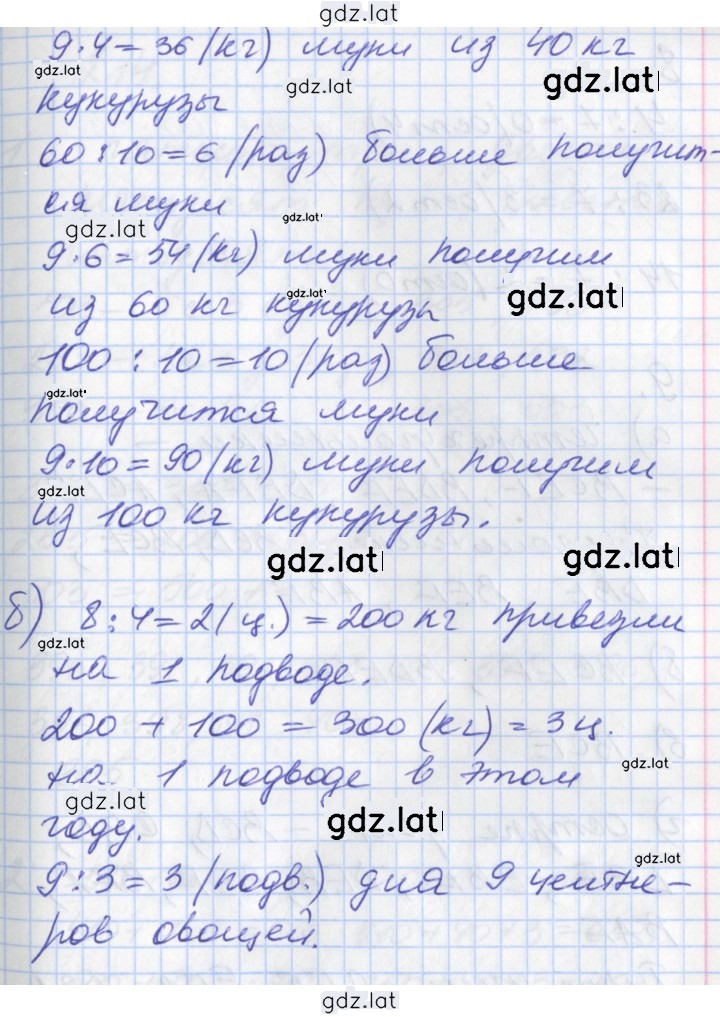 gdz.lat
9·4=36(кг) муки из 40 кг
gdz.lat gdz.lat gdz.lat
кукурузы
60:10=6 (раз) больше получит-
ся муки
gdz.lat gdz.lat
9·6=54(кг) муки получим
gdz.lat gdz.lat
из 60 кг кукурузы
100:10=10(раз) больше
gdz.lat
получится муки
9·10=90(кг) муки получим
gdz.lat
из 100 кг кукурузы.
gdz.lat gdz.lat
б) 8:4=2(ц.)=200 кг привезли
gdz.lat
на 1 подводе.
200+100=300(кг)=3ц.
gdz.lat
на 1 подводе в этом
gdz.lat gdz.lat
году.
gdz.lat
9:3=3 (подв.) для 9 центне-
ров овощей.
gdz.lat